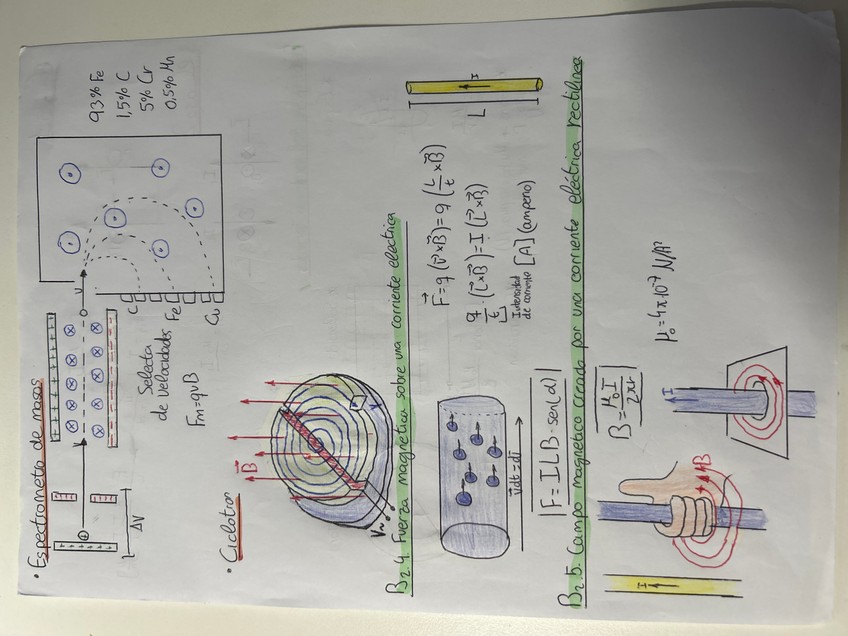 • Espectrómetro de masas
ΔV
V
V
Selector
de velocidades
Fm=qvB
C
Fe
Cu
93% Fe
1,5% C
5% Cr
0.5% Mn
• Ciclotron
B
V~
B₂.4. Fuerza magnética sobre una corriente eléctrica
F=q(v×B)=q(L/t×B)
q/t·(L×B)=I(L×B)
Intensidad
de corriente [A](amperio)
L
I
vdt=dl
|F=ILB·sen(α)|
B₂.5. Campo magnético creada por una corriente eléctrica rectilínea
B=μ₀I/2πr
μ₀=4π×10⁻⁷ N/A²
I
B
I